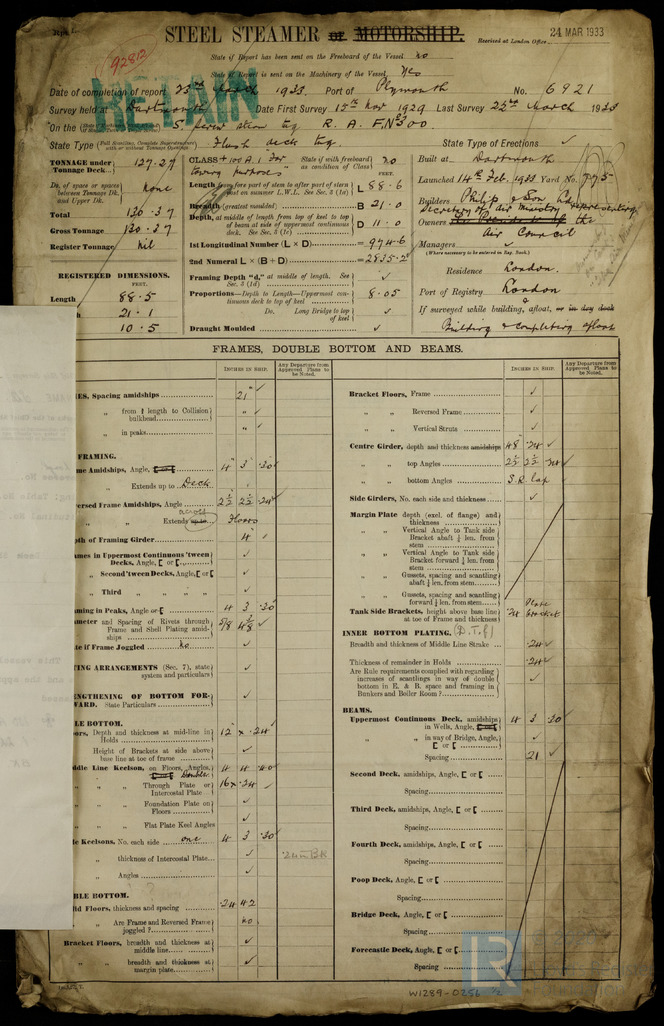 STEEL STEAMER or MOTORSHIP.
Received at London Office 24 MAR 1933
92812
RETAIN
State if Report has been sent on the Freeboard of the Vessel no
State if Report is sent on the Machinery of the Vessel Yes
Date of completion of report 23rd March 1933. Port of Plymouth No. 6921
Survey held at Dartmouth Date First Survey 15th Mar 1929 Last Survey 22nd March 1933
On the S. screw steam tug R. A. F. No 300
State Type Flush deck tug. State Type of Erections ✓
TONNAGE under Tonnage Deck 127.27
Do. of space or spaces between Tonnage Dk. and Upper Dk. none
Total 130.37
Gross Tonnage 130.37
Register Tonnage nil
REGISTERED DIMENSIONS.
FEET.
Length 88.5
21.1
10.5
CLASS +100 A.1 For towing purposes State if with freeboard as condition of Class no
FEET.
Length from fore part of stem to after part of stern post on summer L.W.L. See Sec. 3 (1c) L 88.6
Breadth (greatest moulded) B 21.0
Depth, at middle of length from top of keel to top of beam at side of uppermost continuous deck. See Sec. 3 (1c) D 11.0
1st Longitudinal Number (L × D) = 974.6
2nd Numeral L × (B + D) = 2835.2
Framing Depth "d," at middle of length. See Sec. 3 (1d) ✓
Proportions—Depth to Length—Uppermost continuous deck to top of keel 8.05
Do. Long Bridge to top of keel ✓
Draught Moulded ✓
Built at Dartmouth
Launched 14th Feb. 1933 Yard No. 775
Builders Philip & Son Ld
Owners Secretary of Air Ministry representing the Air Council
Managers ✓
(Where necessary to be entered in Reg. Book.)
Residence London.
Port of Registry London
If surveyed while building, afloat, or in dry dock
Building & completing afloat
FRAMES, DOUBLE BOTTOM AND BEAMS.
INCHES IN SHIP.
Any Departure from Approved Plans to be Noted.
INCHES IN SHIP.
Any Departure from Approved Plans to be Noted.
ES, Spacing amidships 21" ✓
" from ⅕ length to Collision bulkhead " ✓
" in peaks " ✓
FRAMING.
me Amidships, Angle, 4 3 .30 ✓
" Extends up to Deck
versed Frame Amidships, Angle 2½ 2½ .24 ✓
" Extends up to across Floors
pth of Framing Girder 4 "
ames in Uppermost Continuous 'tween Decks, Angle, [ or [ ✓
" Second 'tween Decks, Angle, [ or [ ✓
" Third " " " " ✓
aming in Peaks, Angle or [ 4 3 .30
ameter and Spacing of Rivets through Frame and Shell Plating amidships 5/8 4 3/8 ✓
te if Frame Joggled no ✓
TING ARRANGEMENTS (Sec. 7), state system and particulars ✓
ENGTHENING OF BOTTOM FORWARD. State Particulars ✓
LE BOTTOM.
ors, Depth and thickness at mid-line in Holds 12 × .24 ✓
Height of Brackets at side above base line at toe of frame ✓
ddle Line Keelson, on Floors, Angles, Double 4 4 .40 ✓
" " Through Plate or Intercostal Plate 16 × .24 ✓
" " Foundation Plate on Floors ✓
" " Flat Plate Keel Angles ✓
e Keelsons, No. each side one 4 3 .30 ✓
" thickness of Intercostal Plate ✓
" Angles ✓
BLE BOTTOM.
lid Floors, thickness and spacing .24 42
" Are Frame and Reversed Frame joggled? no
Bracket Floors, breadth and thickness at middle line ✓
" breadth and thickness at margin plate ✓
Bracket Floors, Frame ✓
" " Reversed Frame ✓
" " Vertical Struts ✓
Centre Girder, depth and thickness amidships 48 .24 ✓
" " top Angles 2½ 2½ .24 ✓
" " bottom Angles S.R. Lap ✓
Side Girders, No. each side and thickness ✓
Margin Plate depth (excl. of flange) and thickness
" " Vertical Angle to Tank side Bracket abaft ¼ len. from stem
" " Vertical Angle to Tank side Bracket forward ¼ len. from stem
" " Gussets, spacing and scantling abaft ¼ len. from stem
" " Gussets, spacing and scantling forward ¼ len. from stem
Tank Side Brackets, height above base line at toe of Frame and thickness .24 Plate bracket
INNER BOTTOM PLATING.
Breadth and thickness of Middle Line Strake .24 ✓
Thickness of remainder in Holds .24 ✓
Are Rule requirements complied with regarding increases of scantlings in way of double bottom in E. & B. space and framing in Bunkers and Boiler Room? ✓
BEAMS.
Uppermost Continuous Deck, amidships in Wells, Angle, 4 3 .30 ✓
" " in way of Bridge, Angle, [ or [ ✓
Spacing 21 ✓
Second Deck, amidships, Angle, [ or [
Spacing
Third Deck, amidships, Angle, [ or [
Spacing
Fourth Deck, amidships, Angle, [ or [
Spacing
Poop Deck, Angle, [ or [
Spacing
Bridge Deck, Angle, [ or [
Spacing
Forecastle Deck, Angle, [ or [
Spacing
W1289-0256 1/2